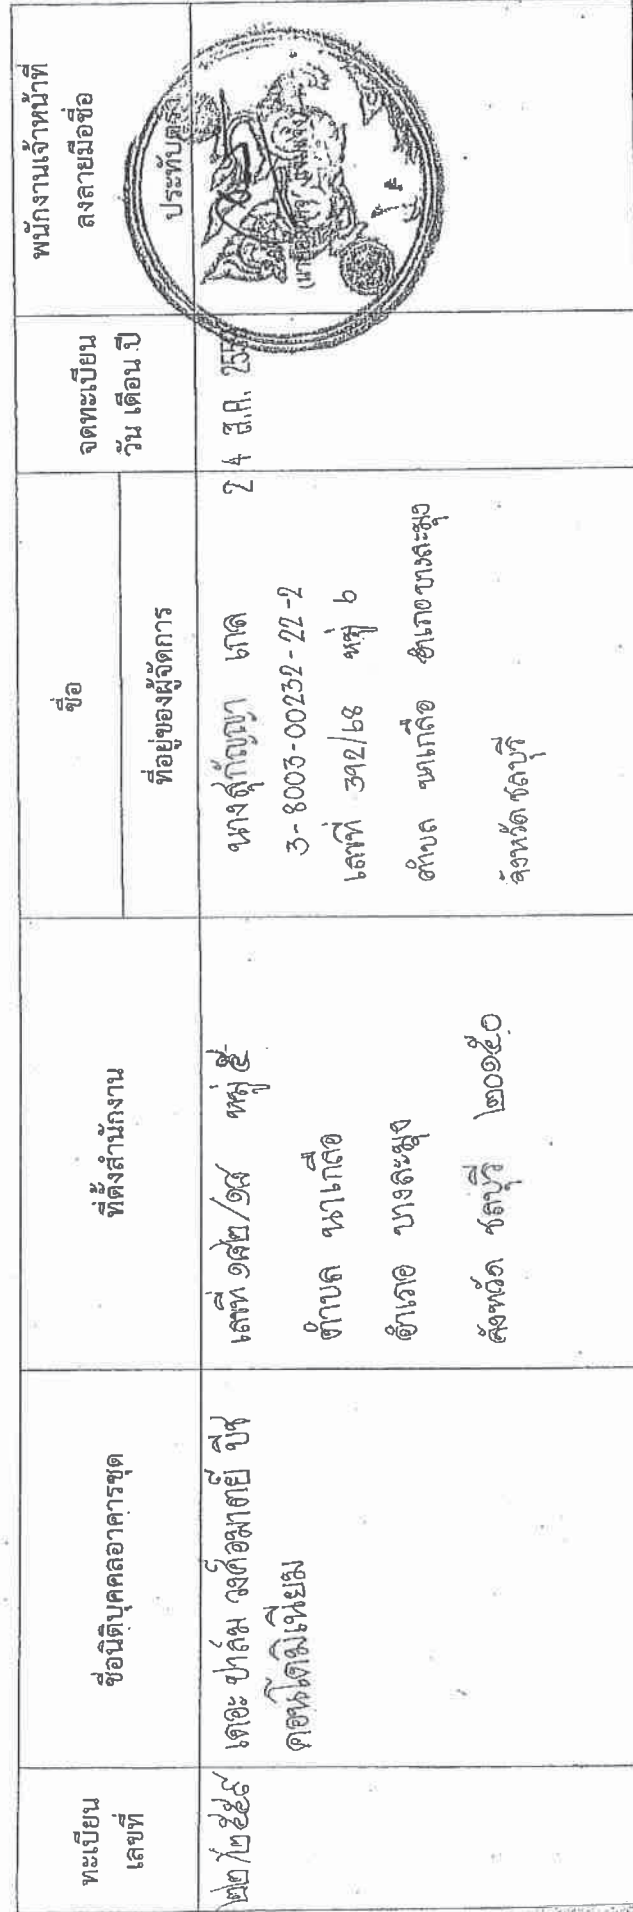 ทะเบียน
เลขที่
ชื่อนิติบุคคลอาคารชุด
ที่ตั้งสำนักงาน
ชื่อ
ที่อยู่ของผู้จัดการ
จดทะเบียน
วัน เดือน ปี
พนักงานเจ้าหน้าที่
ลงลายมือชื่อ
ประทับตรา
๒๒/๒๕๕๙
เดอะ ปาล์ม วงศ์อมาตย์ บีช
คอนโดมิเนียม
เลขที่ ๑๙๒/๑๙ หมู่ ๕
ตำบล นาเกลือ
อำเภอ บางละมุง
จังหวัด ชลบุรี ๒๐๑๕๐
นางสุกัญญา เกล
3-8003-00232-22-2
เลขที่ 392/๖8 หมู่ ๖
ตำบล นาเกลือ อำเภอบางละมุง
จังหวัด ชลบุรี
2 4 ส.ค.